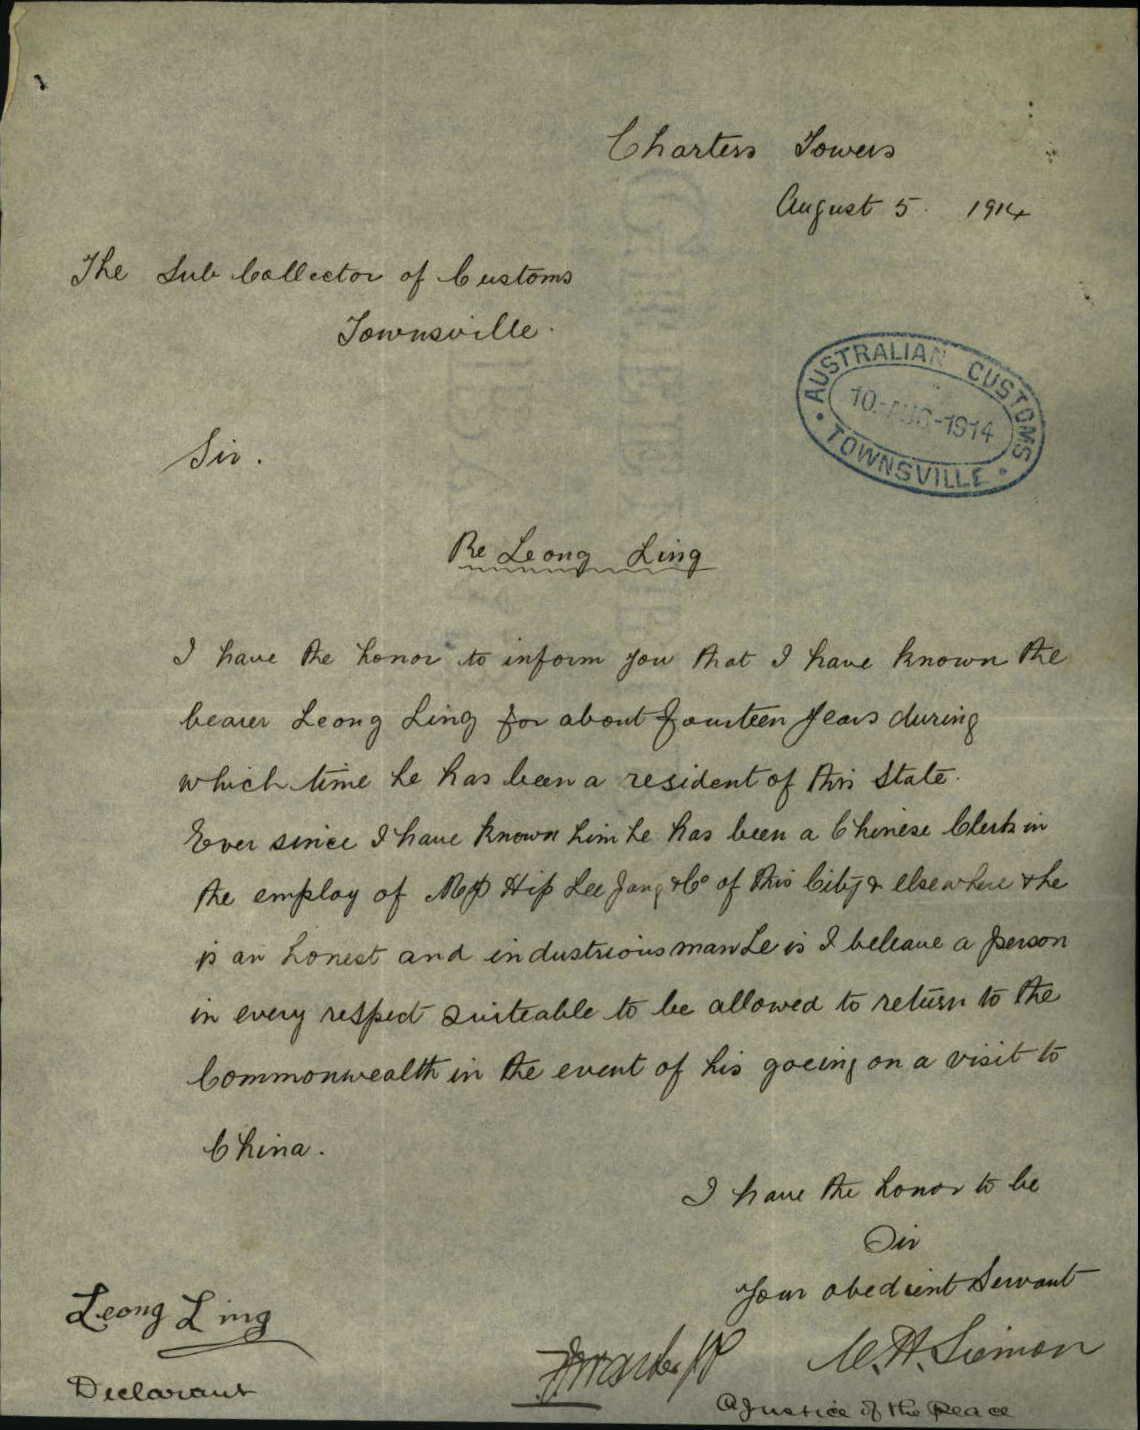 Charters Towers
August 5. 1914
The Sub Collector of Customs
Townsville.
AUSTRALIAN CUSTOMS
10-AUG-1914
TOWNSVILLE
Sir.
Re Leong Ling
I have the honor to inform you that I have known the
bearer Leong Ling for about fourteen years during
which time he has been a resident of this State.
Ever since I have known him he has been a Chinese Clerk in
the employ of Hip Lee Jang & Co of this City & elsewhere & he
is an honest and industrious man he is I beleave a person
in every respect suiteable to be allowed to return to the
Commonwealth in the event of his goeing on a visit to
China.
I have the honor to be
Sir
Your obedient Servant
Leong Ling
Declarant
JP
W. H. Simon
A Justice of the Peace